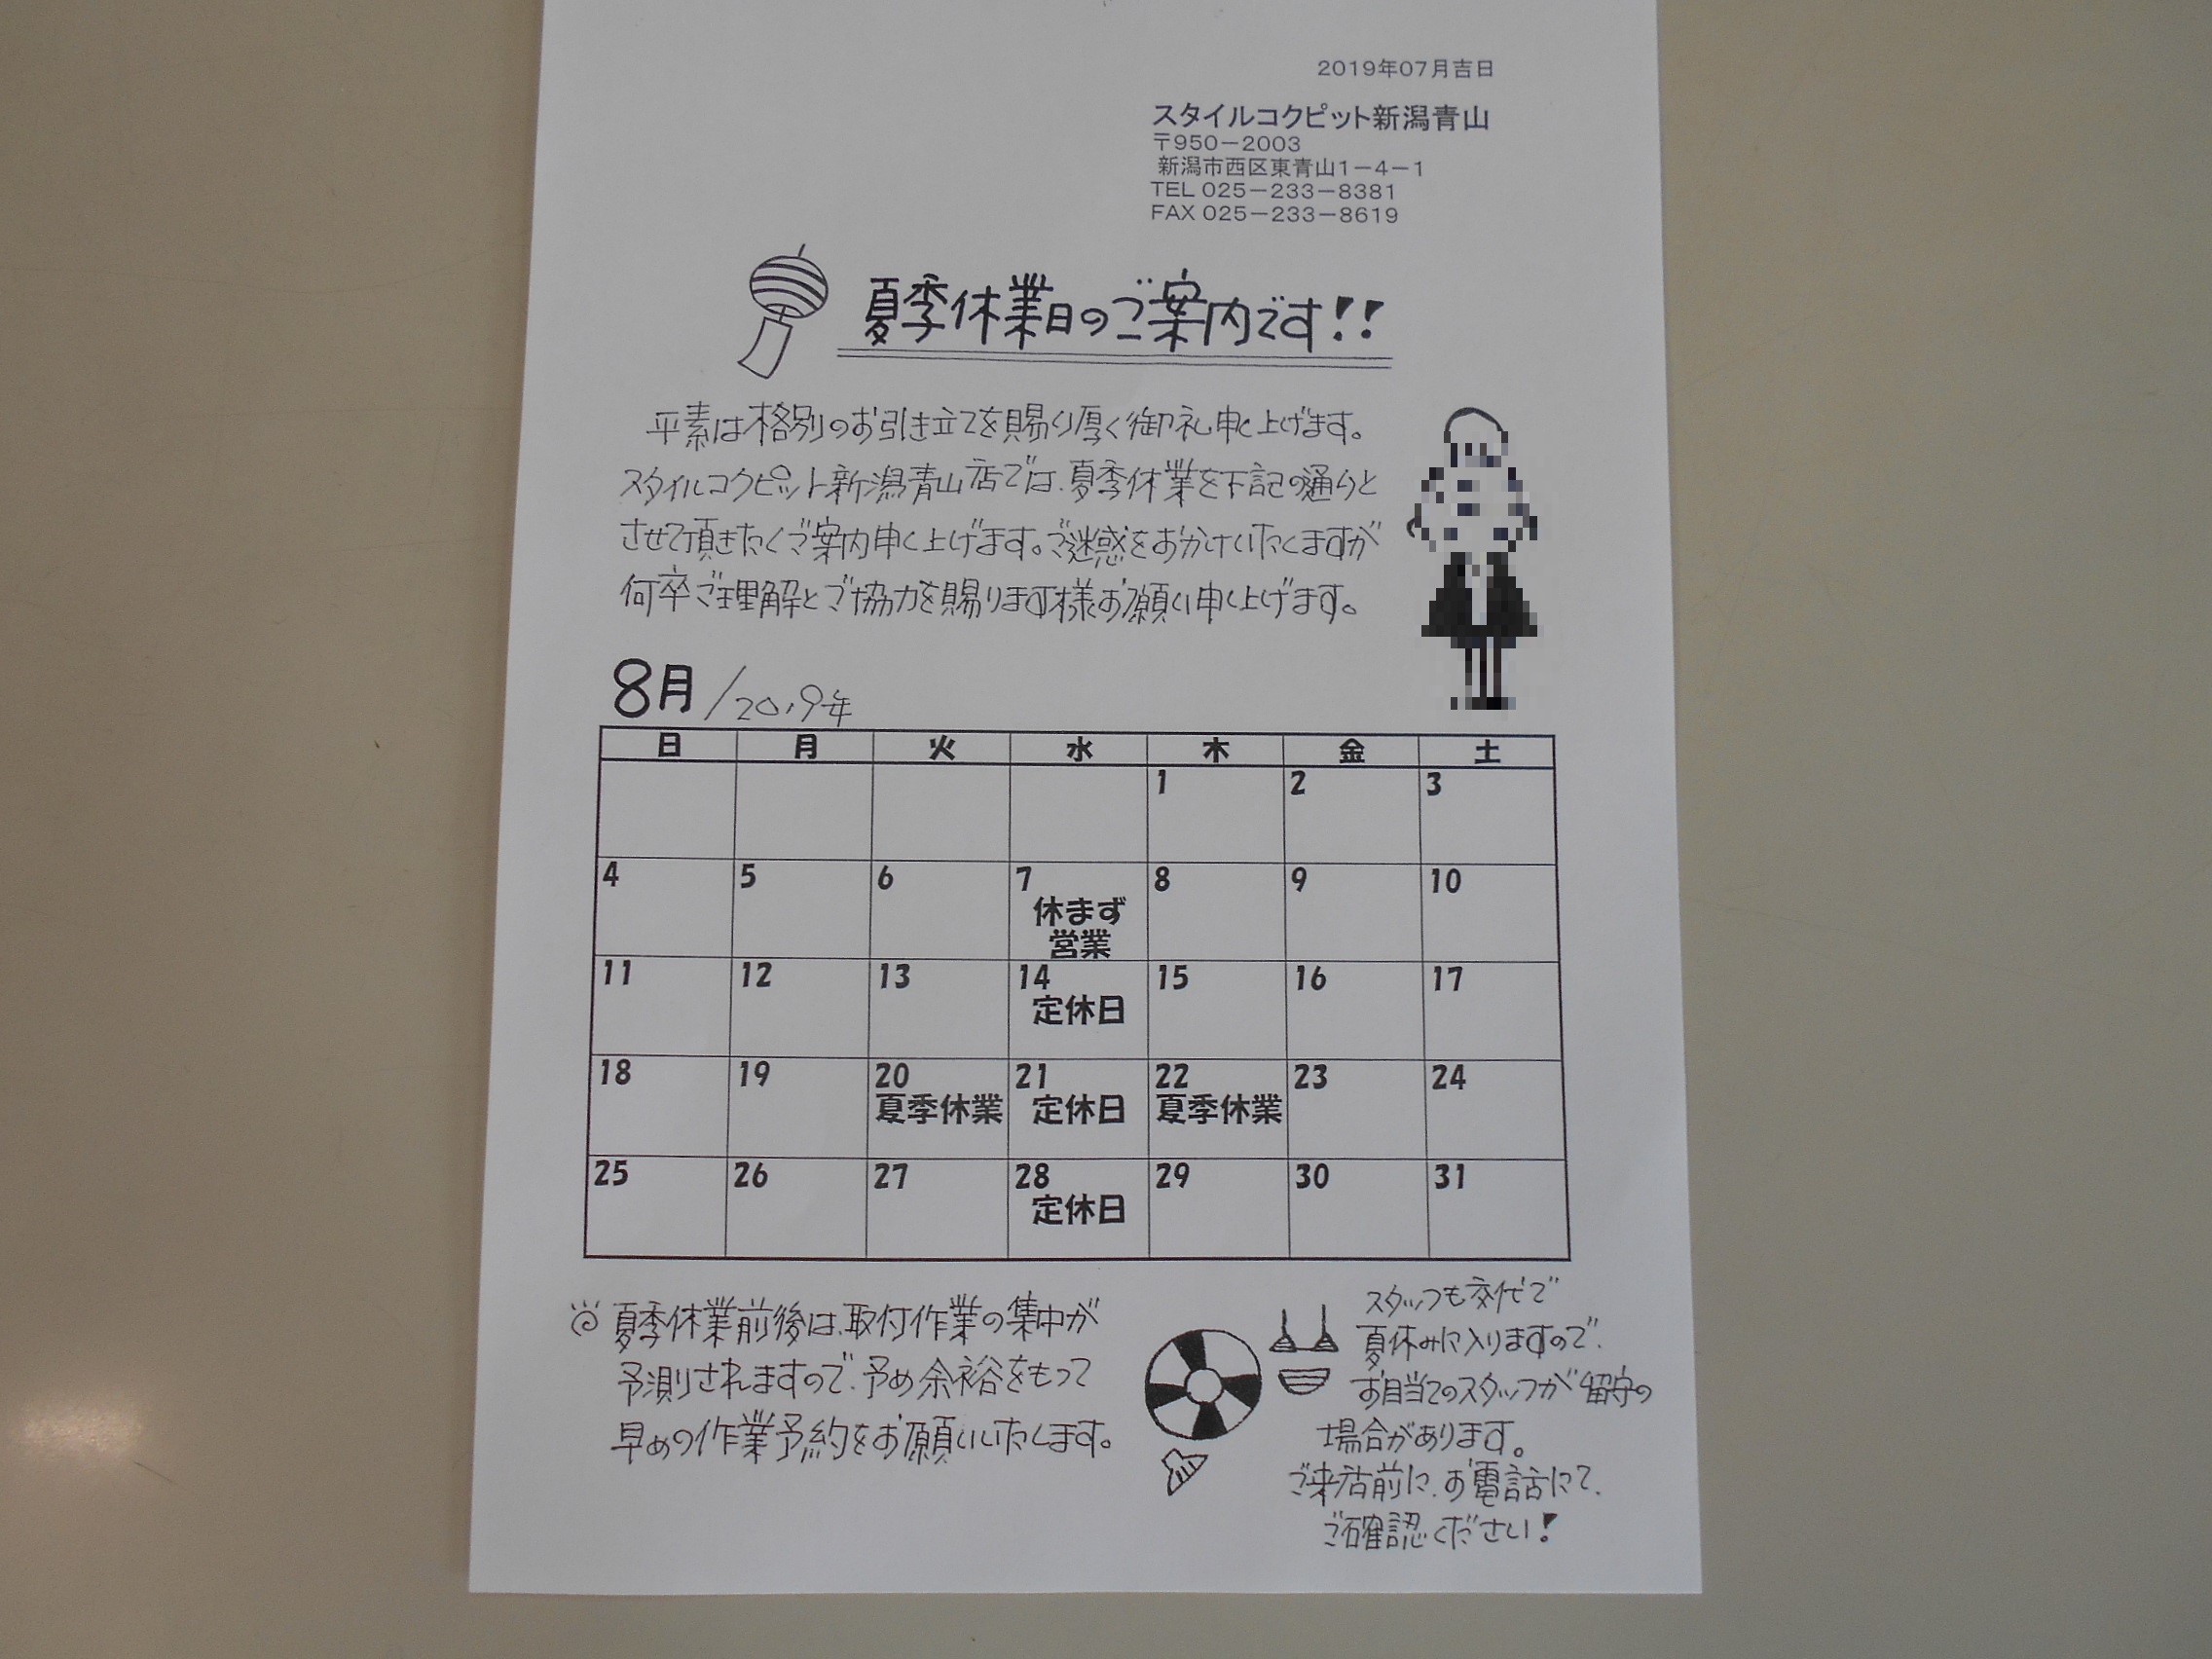 2019年07月吉日
スタイルコクピット新潟青山
〒950－2003
新潟市西区東青山1－4－1
TEL 025－233－8381
FAX 025－233－8619
夏季休業日のご案内です!!
平素は格別のお引き立てを賜り厚く御礼申し上げます。
スタイルコクピット新潟青山店では、夏季休業を下記の通りと
させて頂きたくご案内申し上げます。ご迷惑をおかけいたしますが
何卒ご理解とご協力を賜ります様お願い申し上げます。
8月/2019年
日 月 火 水 木 金 土
1 2 3
4 5 6 7 8 9 10
休まず
営業
11 12 13 14 15 16 17
定休日
18 19 20 21 22 23 24
夏季休業 定休日 夏季休業
25 26 27 28 29 30 31
定休日
夏季休業前後は、取付作業の集中が
予測されますので、予め余裕をもって
早めの作業予約をお願いいたします。
スタッフも交代で
夏休みに入りますので、
お目当てのスタッフが留守の
場合があります。
ご来店前に、お電話にて、
ご確認ください!